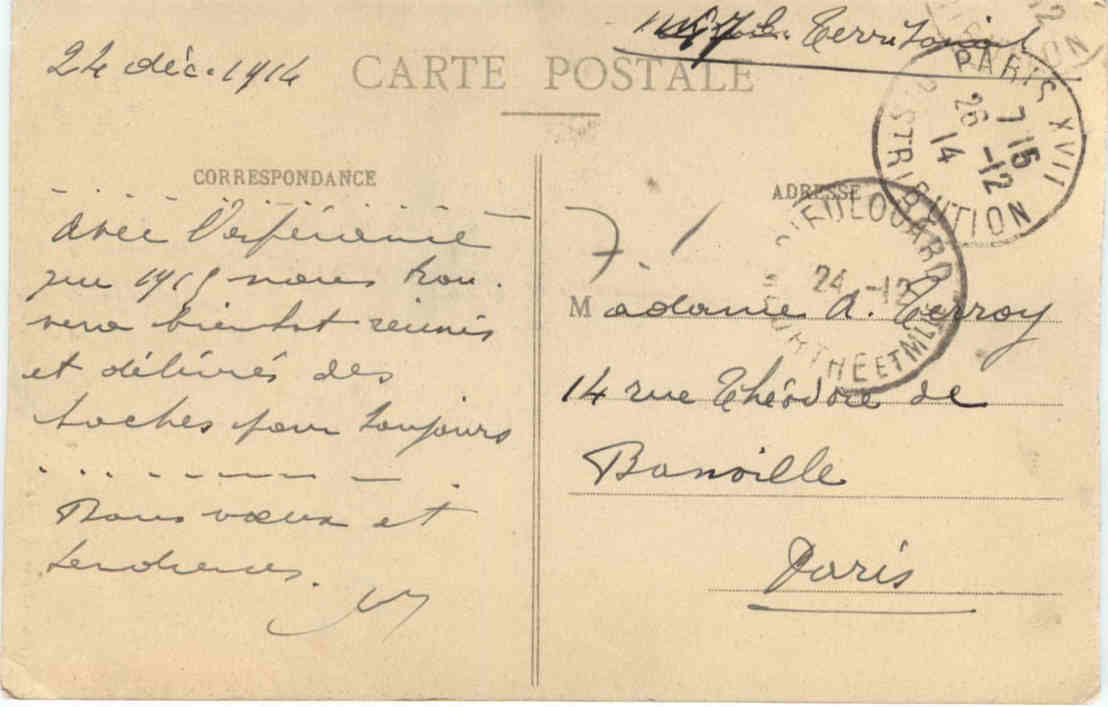 Territorial
24 déc. 1914
CARTE POSTALE
PARIS XVII
7 15
26 -12
14
DISTRIBUTION
CORRESPONDANCE
ADRESSE
Avec l'espérance
que 1915 nous trou-
vera bientôt réunis
et délivrés des
boches pour toujours
Bons vœux et
tendresses.
F.
DIEULOUARD
24 -12
MEURTHE ET MLLE
Madame A. Terroy
14 rue Théodore de
Banville
Paris